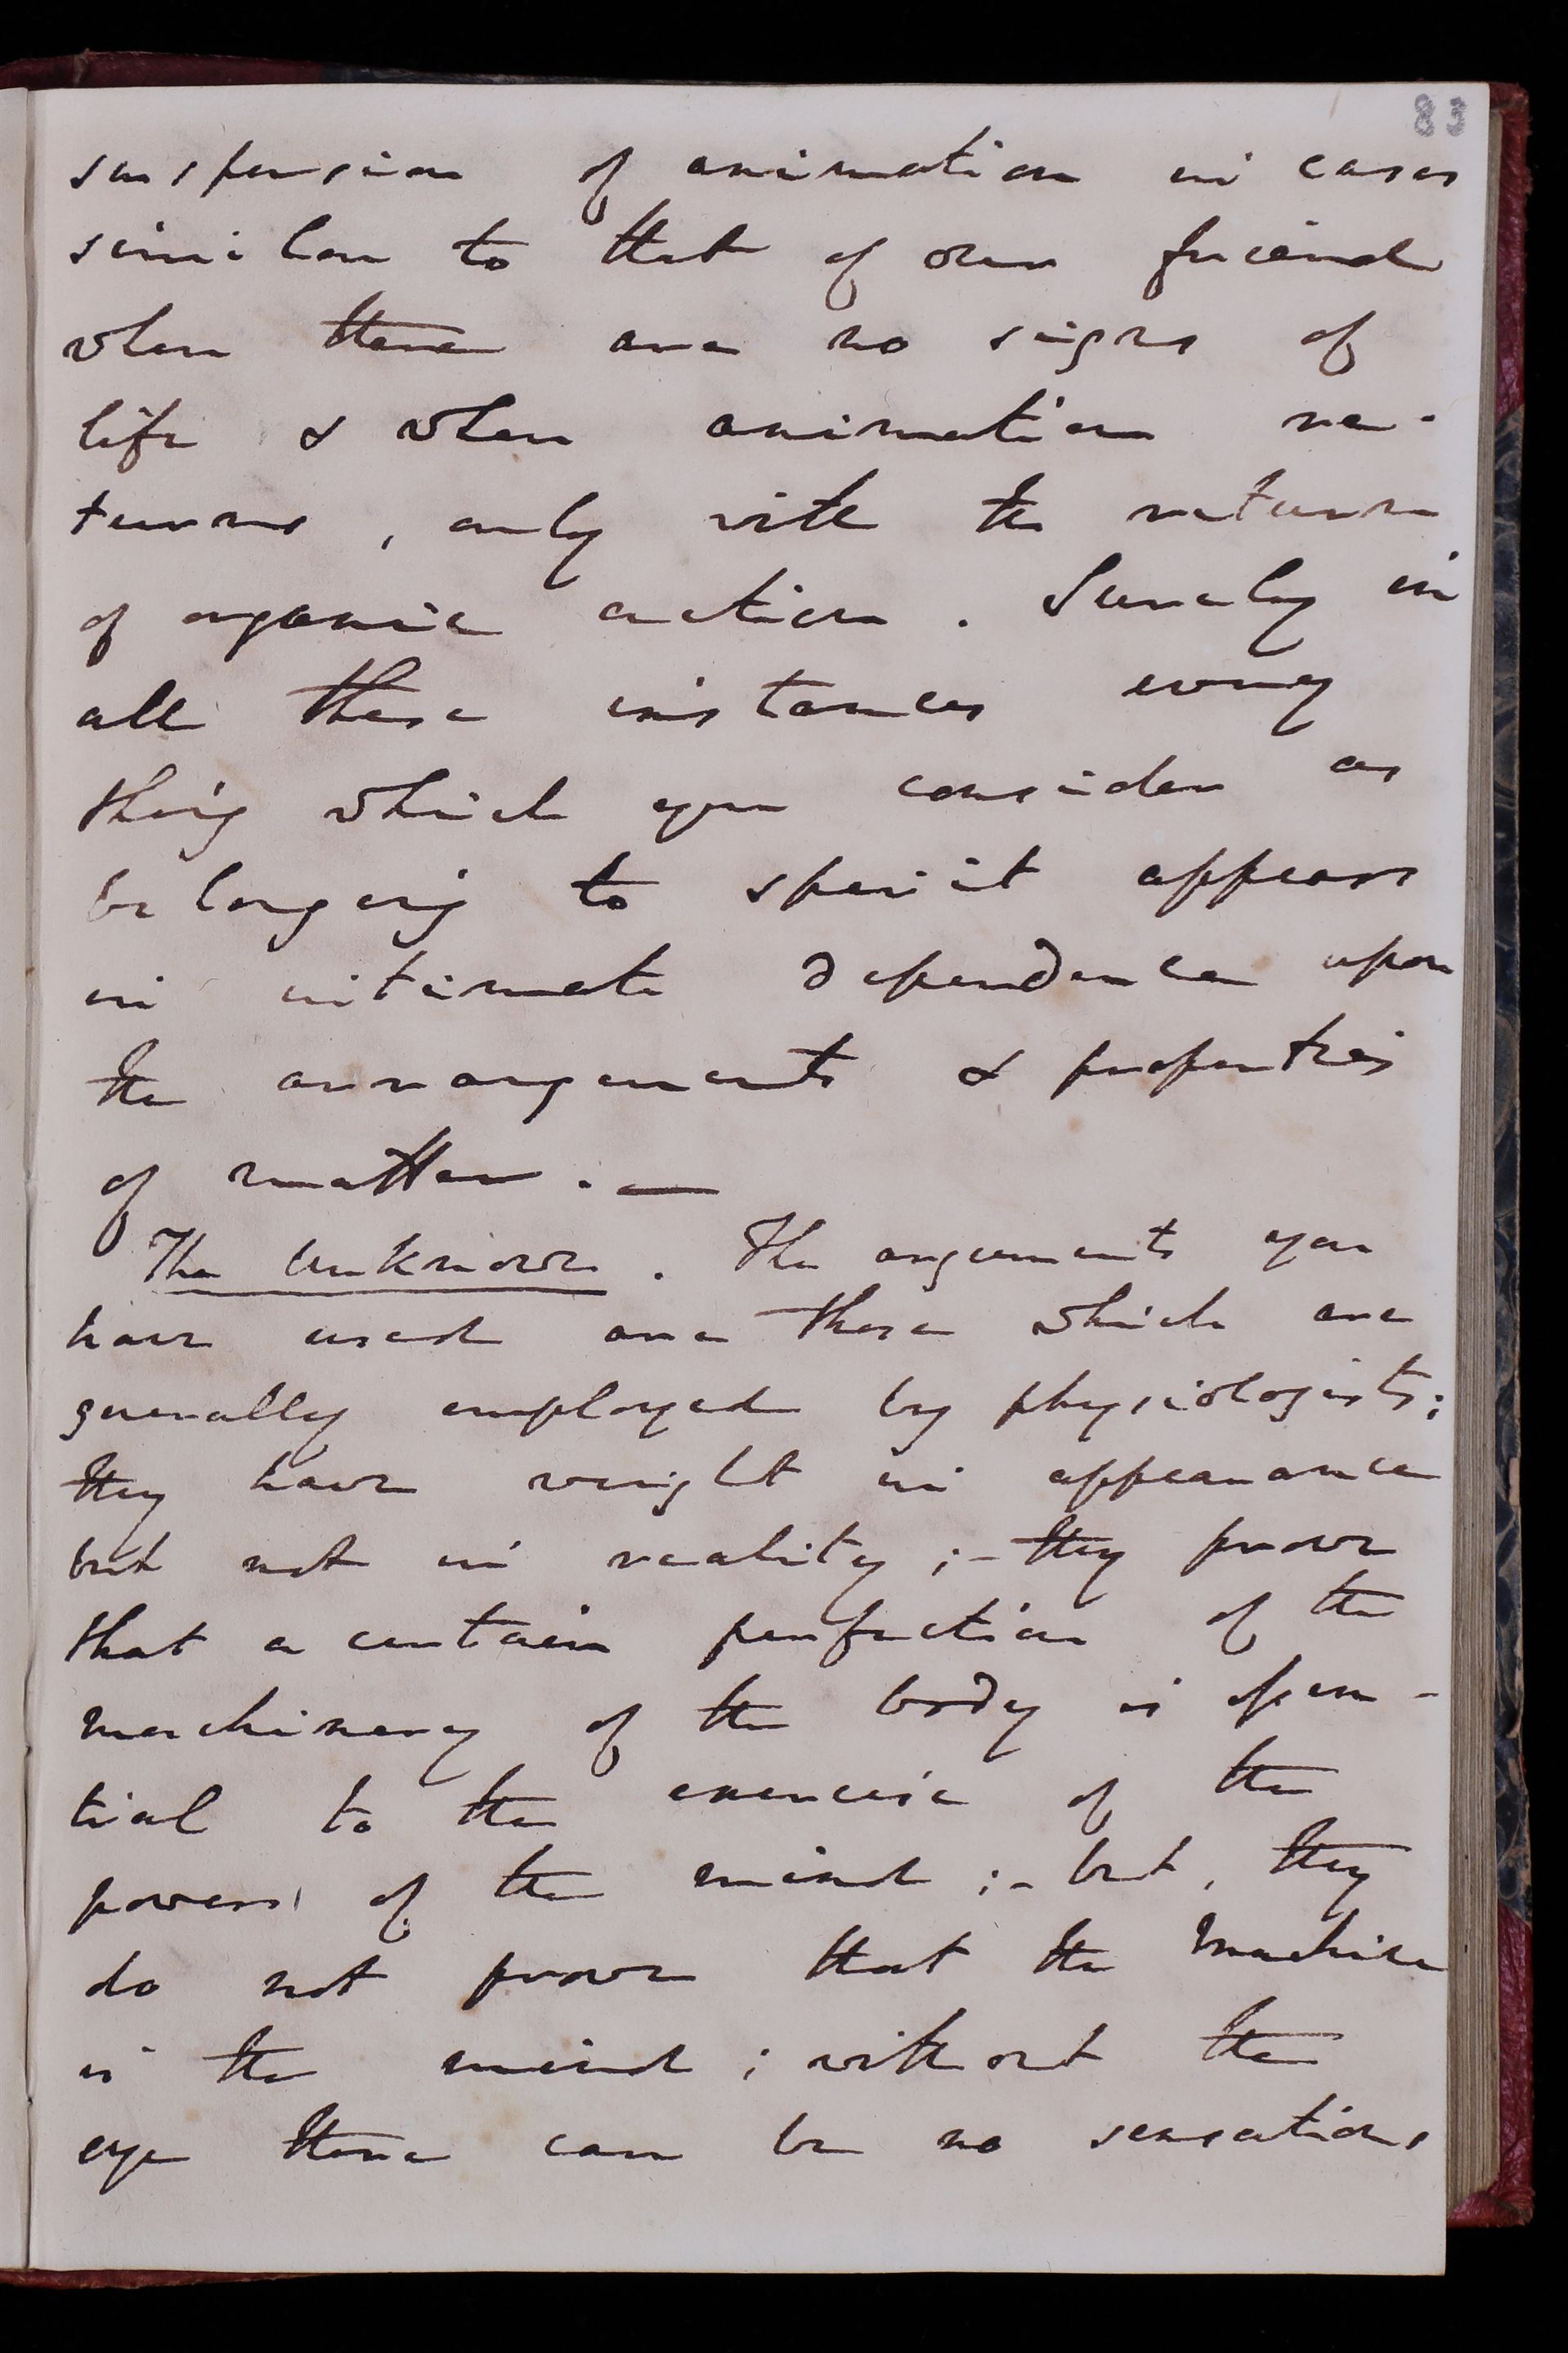 83
suspension of animation in cases
similar to that of our friend
when there are no signs of
life & when animation re-
turns, only with the return
of organic action. Surely in
all these instances every
thing which you consider as
belonging to spirit appears
in intimate dependence upon
the arrangements & properties
of matter. —
The Unknown. The arguments you
have used are those which are
generally employed by physiologists;
they have weight in appearance
but not in reality; - they prove
that a certain perfection of the
machinery of the body is essen-
tial to the exercise of the
powers of the mind; - but, they
do not prove that the machine
is the mind; without the
eye there can be no sensations